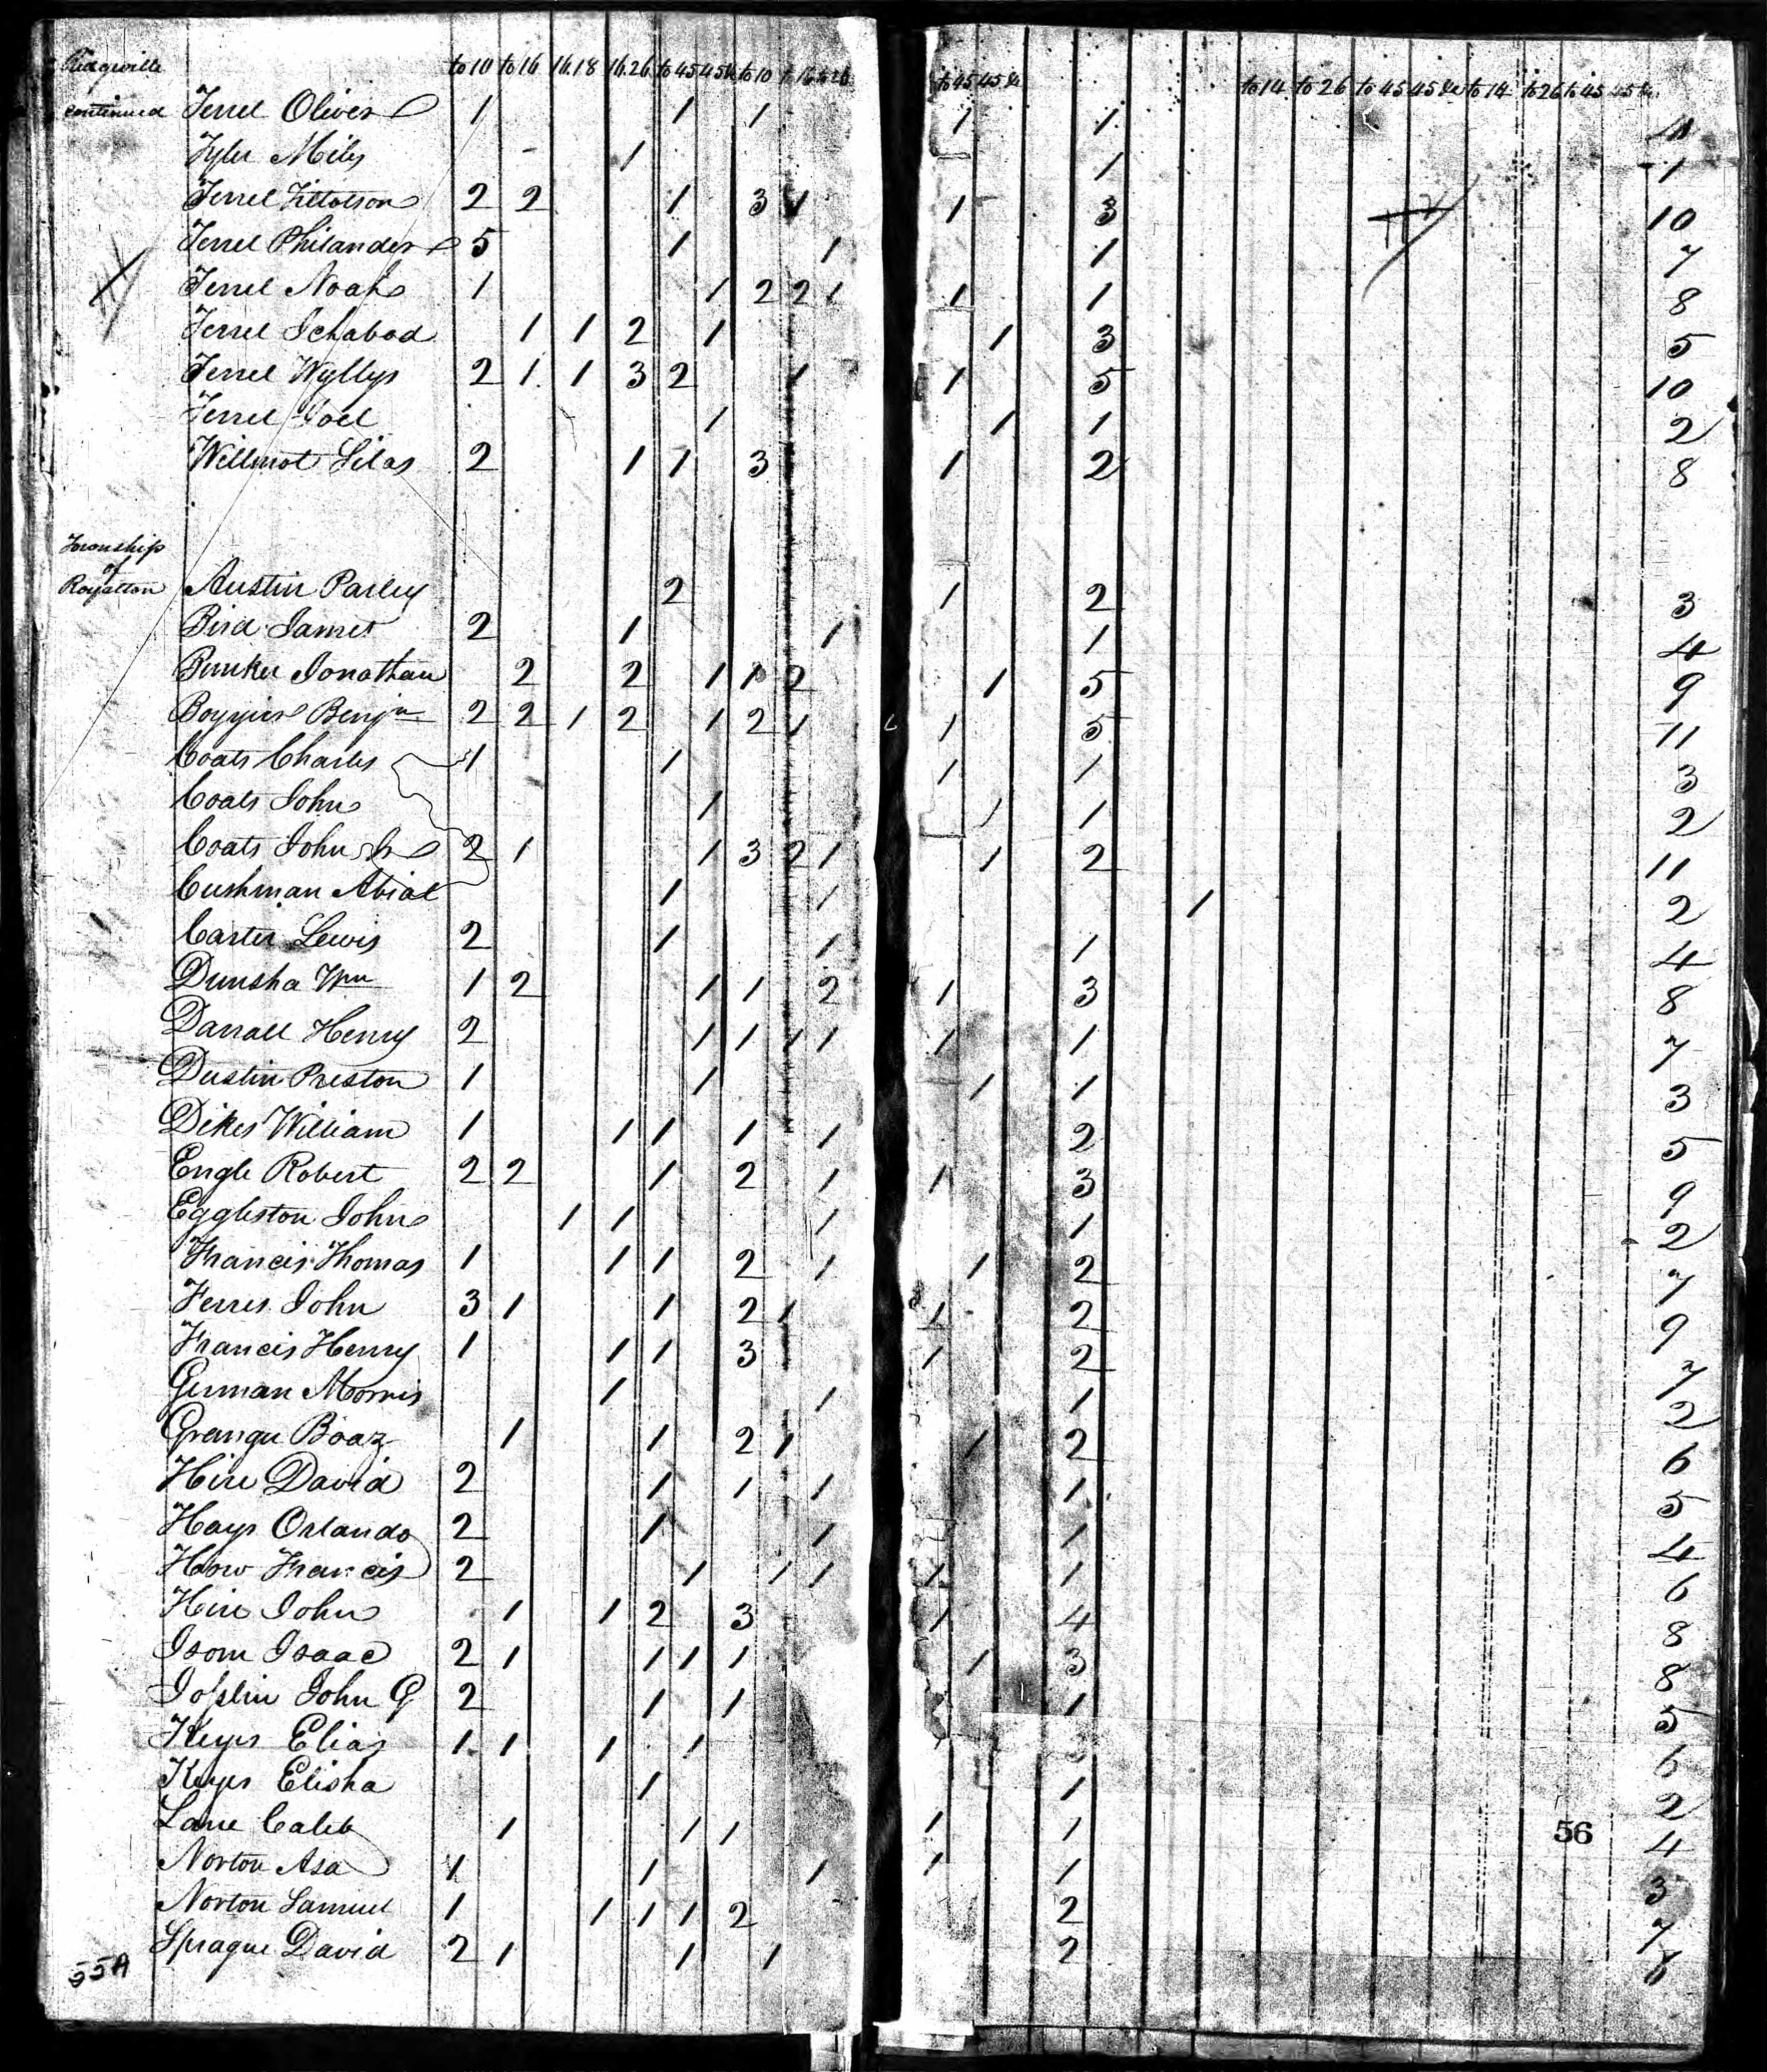 Ridgville to 10 to 16 16.18 16.26 to 45 45 &c to 10 to 16 to 26 to 45 45 &c to 14 to 26 to 45 45 &c to 14 to 26 to 45 45 &c
continued Terrel Oliver 1 1 1 1 1 4
Tyler Miles 1 1 1
Terrel Tillotson 2 2 1 3 1 1 3 10
Terrel Philander 5 1 1 1 7
Terrel Noah 1 1 2 2 1 1 1 8
Terrel Ichabod 1 1 2 1 1 3 5
Terrel Wyllys 2 1 1 3 2 1 1 5 10
Terrel Joel 1 1 1 2
Willmot Silas 2 1 1 3 1 2 8
Township
of
Royalton Austin Parley 2 1 2 3
Bird James 2 1 1 1 4
Bunker Jonathan 2 2 1 1 2 1 5 9
Boyyier Benjn 2 2 1 2 1 2 1 1 5 11
Coats Charles 1 1 1 1 3
Coats John 1 1 1 2
Coats John Jr 2 1 1 3 2 1 1 2 11
Cushman Abial 1 1 1 2
Carter Lewis 2 1 1 1 4
Dunsha Wm 1 2 1 1 2 1 3 8
Darrall Henry 2 1 1 1 1 1 1 7
Dustin Preston 1 1 1 1 3
Dikes William 1 1 1 1 1 2 5
Engle Robert 2 2 1 2 1 1 3 9
Eggleston John 1 1 1 1 2
Francis Thomas 1 1 1 2 1 1 2 7
Ferris John 3 1 1 2 1 1 2 9
Francis Henry 1 1 1 3 1 2 7
German Morris 1 1 1 2
Granger Boaz 1 1 2 1 1 2 6
Hire David 2 1 1 1 1 5
Hays Orlando 2 1 1 1 4
How Francis 2 1 1 1 1 1 6
Hire John 1 1 2 3 1 4 8
Isom Isaac 2 1 1 1 1 1 3 8
Joslin John G 2 1 1 1 5
Keyes Elias 1 1 1 1 3 6
Keyes Elisha 1 1 2
Lane Caleb 1 1 1 1 1 56 4
Norton Asa 1 1 1 1 1 3
Norton Samuel 1 1 1 1 2 2 7
Sprague David 2 1 1 1 2 8
55A